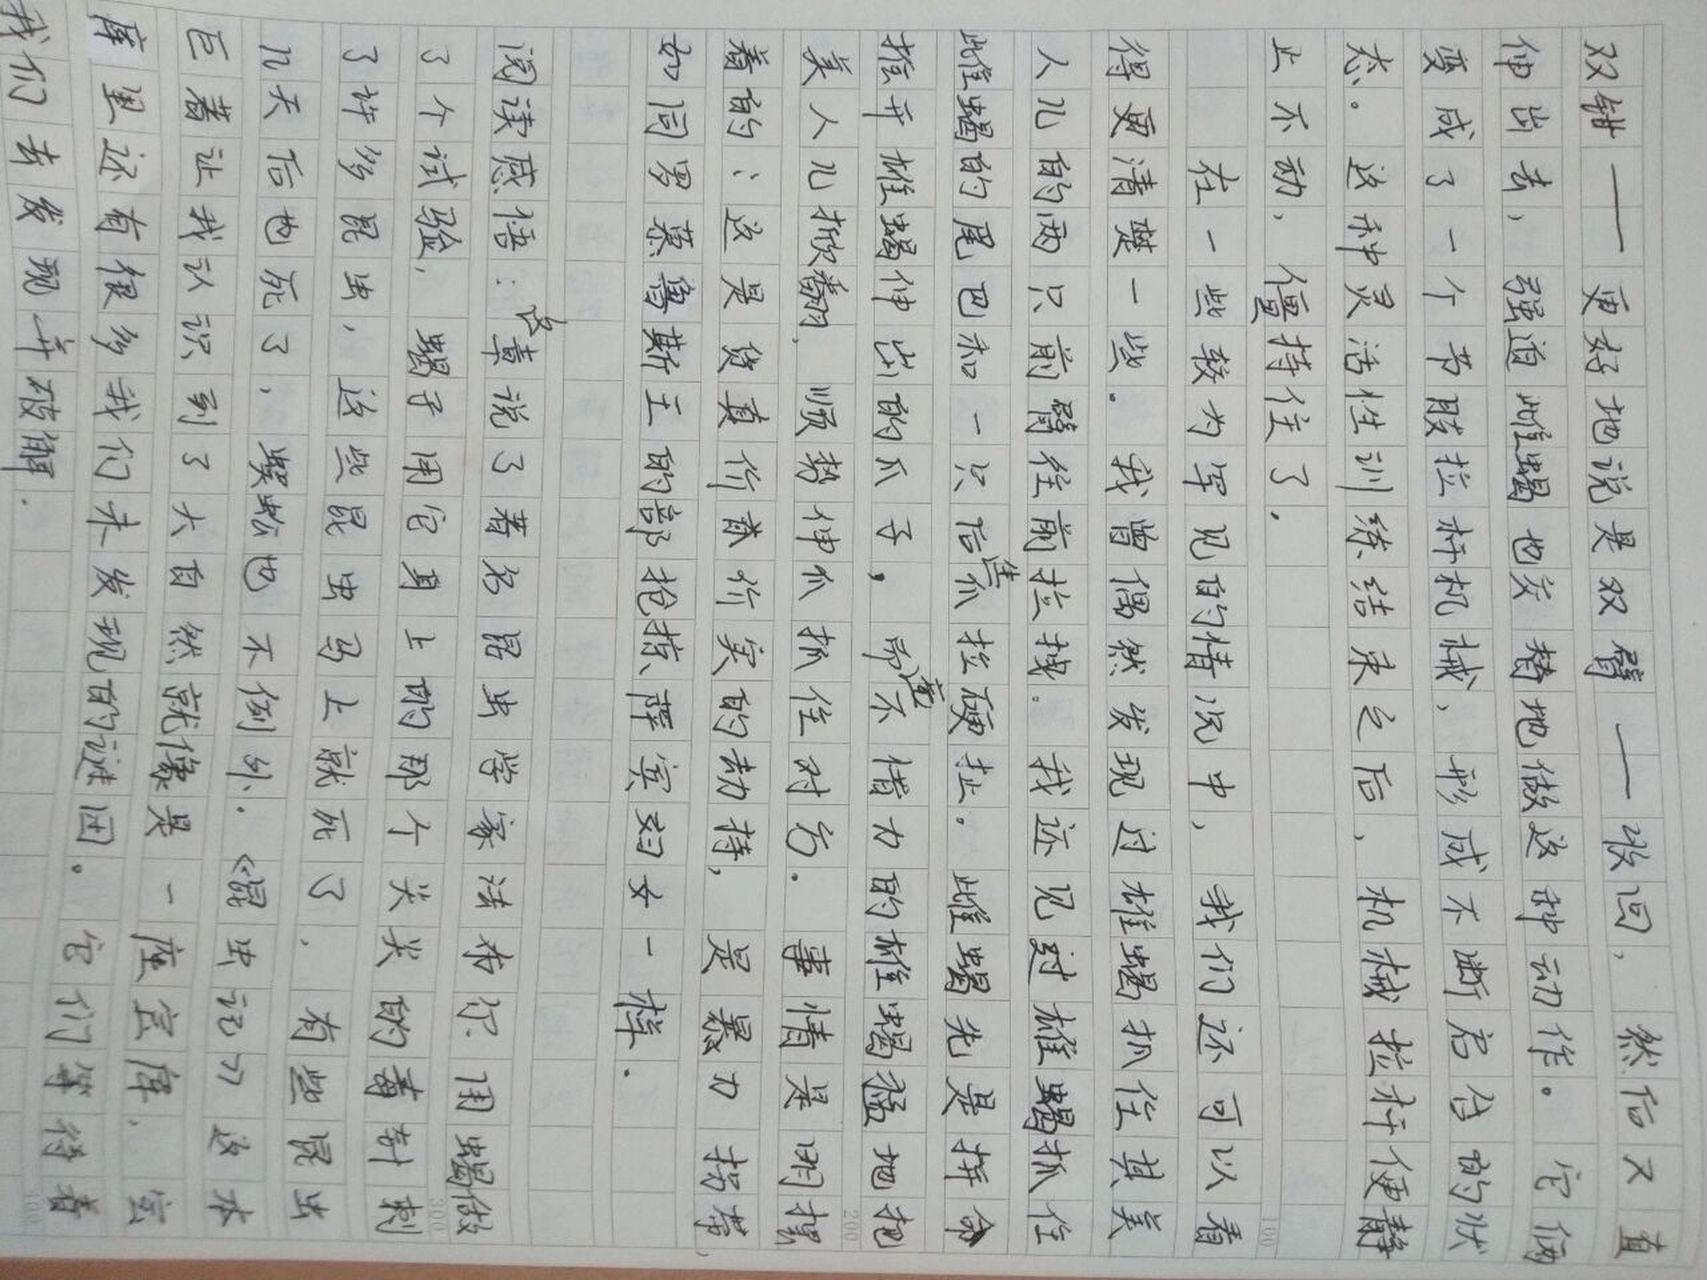 双钳——更好地说是双臂——张回，然后又直
伸出去，强道雌蝎也交替地做这种动作。它俩
变成了一个节肢拉杆机械，形成不断启合的状
态。这种灵活性训练结束之后，机械拉杆便静
止不动，僵持住了。
100
在一些较为罕见的情况中，我们还可以看
得更清楚一些。我曾偶然发现过雄蝎抓住其美
人儿的两只前臂往前拉拽。我还见过雄蝎抓住
雌蝎的尾巴和一只后爪生拉硬扯。雌蝎先是拼命
推开雄蝎伸出的爪子，而毫不惜力的雄蝎猛地把
200
美人儿掀翻，顺势伸爪抓住对方。事情是明摆
着的：这是货真价实的劫持，是暴力拐带，
如同罗慕鲁斯王的部抢掠萨宾妇女一样。
阅读感悟：本章说了著名昆虫学家法布尔用蝎做
了个试验，蝎子用它身上的那个尖尖的毒针刺
300
了许多昆虫，这些昆虫马上就死了，有些昆虫
几天后也死了，蜈蚣也不例外。《昆虫记》这本
巨著让我认识到了大自然就像是一座宝库，宝
库里还有很多我们未发现的谜团。它们等待着
我们去发现并破解。